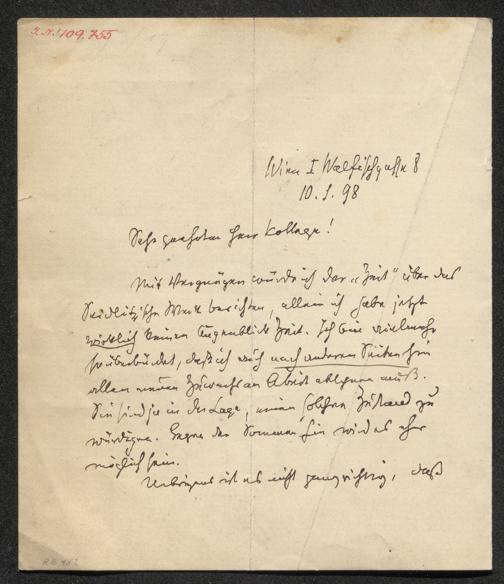 I.N. 109.755
Wien I Walfischgasse 8
10. 1. 98
Sehr geehrter Herr Kollege!
Mit Vergnügen würde ich der „Zeit“ über das
Seidlitz'sche Werk berichten, allein ich habe jetzt
wirklich keinen Augenblick Zeit. Ich bin vielmehr
so überbürdet, daß ich auch nach anderen Seiten hin
allen neuen Zuwachs an Arbeit ablehnen muß.
Sie sind ja in der Lage, einen solchen Zustand zu
würdigen. Gegen den Sommer hin wird es eher
möglich sein.
Uebrigens ist es nicht ganz richtig, daß